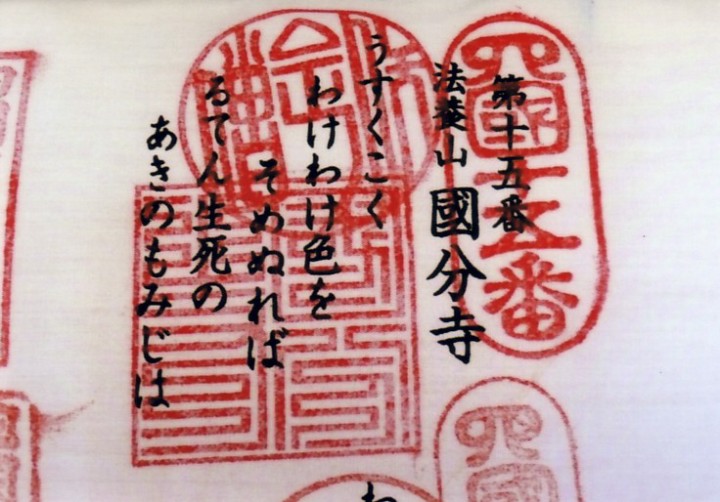 四國十五番
第十五番
法養山 國分寺
うすくこく
わけわけ色を
そめぬれば
るてん生死の
あきのもみじは
四國